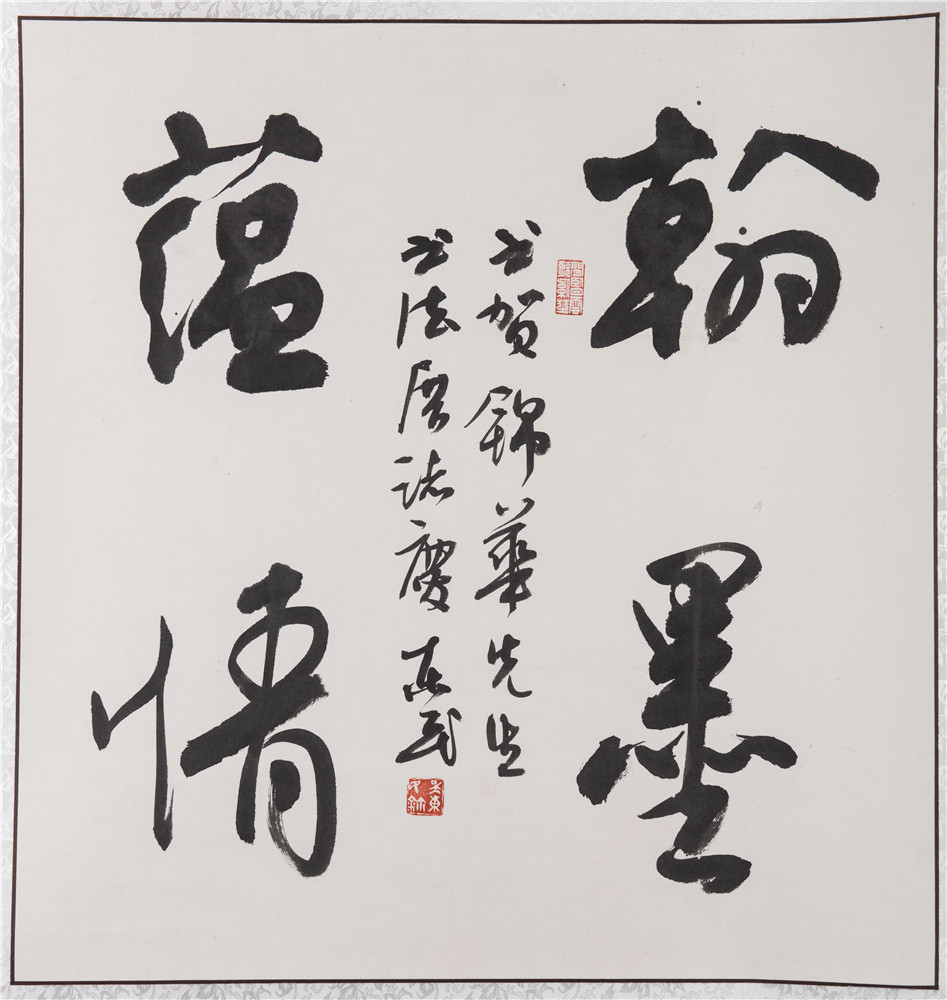 翰墨
蕴情
书贺锦华先生
书法展志庆 东民